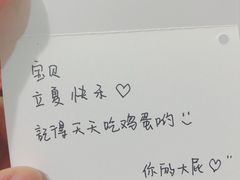 宝贝
立夏快乐♡
記得天天吃鸡蛋哟
你的大屁♡